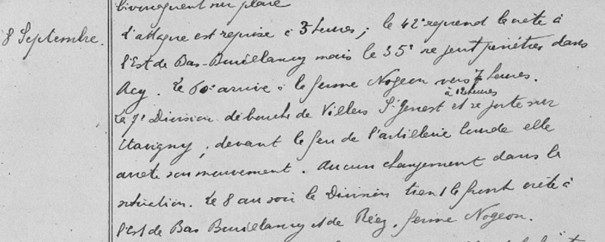 bivouaquent sur place
8 Septembre. L'attaque est reprise à 3 heures ; le 42e reprend la crête à
l'Est de Bas-Bouillancy mais le 35e ne peut pénétrer dans
Acy. Le 60e arrive à la ferme Nogeon vers 7 heures.
à 12 heures
La 7e Division débouche de Villers St Genest et se porte sur
Etavigny ; devant le feu de l'artillerie lourde elle
arrête son mouvement. Aucun changement dans la
situation. Le 8 au soir la Division tient le front crête à
l'Est de Bas Bouillancy et de Réez, ferme Nogeon.